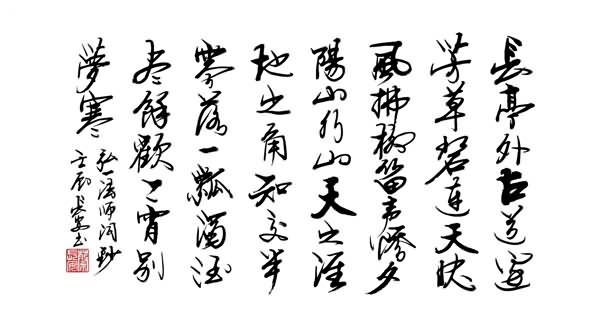 長亭外古道邊
芳草碧連天晚
風拂柳笛聲殘夕
陽山外山天之涯
地之角知交半
零落一瓢濁酒
盡餘歡今宵別
夢寒
弘一法師詞鈔
書